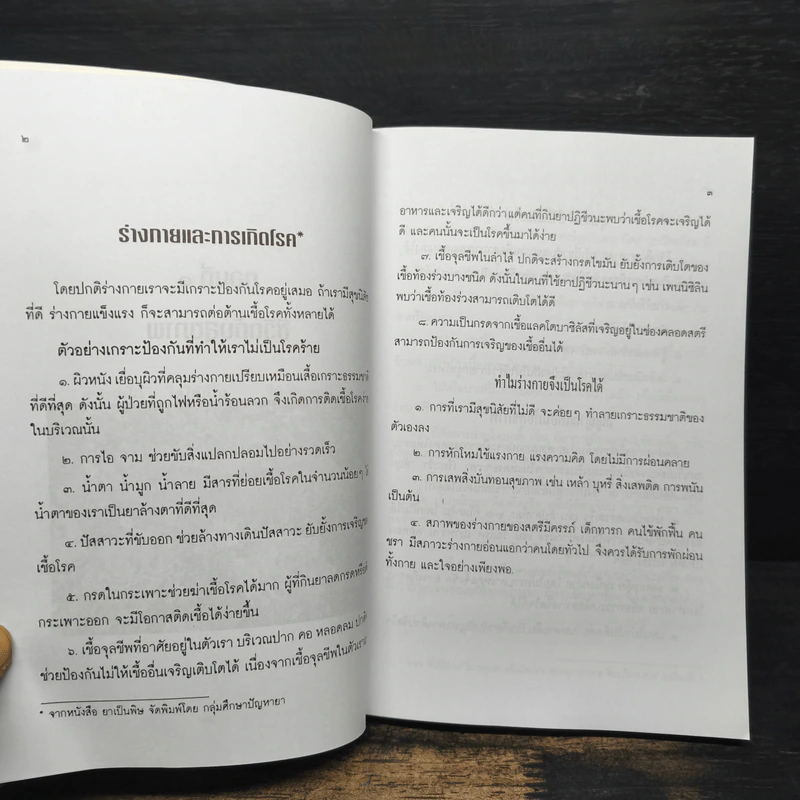 ๒
ร่างกายและการเกิดโรค*
โดยปกติร่างกายเราจะมีเกราะป้องกันโรคอยู่เสมอ ถ้าเรามีสุขนิสัย
ที่ดี ร่างกายแข็งแรง ก็จะสามารถต่อต้านเชื้อโรคทั้งหลายได้
ตัวอย่างเกราะป้องกันที่ทำให้เราไม่เป็นโรคร้าย
๑. ผิวหนัง เยื่อบุผิวที่คลุมร่างกายเปรียบเหมือนเสื้อเกราะธรรมชาติ
ที่ดีที่สุด ดังนั้น ผู้ป่วยที่ถูกไฟหรือน้ำร้อนลวก จึงเกิดการติดเชื้อโรค
ในบริเวณนั้น
๒. การไอ จาม ช่วยขับสิ่งแปลกปลอมไปอย่างรวดเร็ว
๓. น้ำตา น้ำมูก น้ำลาย มีสารที่ย่อยเชื้อโรคในจำนวนน้อยๆ ได้
น้ำตาของเราเป็นยาล้างตาที่ดีที่สุด
๔. ปัสสาวะที่ขับออก ช่วยล้างทางเดินปัสสาวะ ยับยั้งการเจริญ
เชื้อโรค
๕. กรดในกระเพาะช่วยฆ่าเชื้อโรคได้มาก ผู้ที่กินยาลดกรดหรือ
กระเพาะออก จะมีโอกาสติดเชื้อได้ง่ายขึ้น
๖. เชื้อจุลชีพที่อาศัยอยู่ในตัวเรา บริเวณปาก คอ หลอดลม
ช่วยป้องกันไม่ให้เชื้ออื่นเจริญเติบโตได้ เนื่องจากเชื้อจุลชีพในตัวเรา
* จากหนังสือ ยาเป็นพิษ จัดพิมพ์โดย กลุ่มศึกษาปัญหายา
๓
อาหารและเจริญได้ดีกว่า แต่คนที่กินยาปฏิชีวนะพบว่าเชื้อโรคจะเจริญได้
ดี และคนนั้นจะเป็นโรคขึ้นมาได้ง่าย
๗. เชื้อจุลชีพในลำไส้ ปกติจะสร้างกรดไขมัน ยับยั้งการเติบโตของ
เชื้อท้องร่วงบางชนิด ดังนั้นในคนที่ใช้ยาปฏิชีวนะนานๆ เช่น เพนนิซิลิน
พบว่าเชื้อท้องร่วงสามารถเติบโตได้ดี
๘. ความเป็นกรดจากเชื้อแลคโตบาซิลัสที่เจริญอยู่ในช่องคลอดสตรี
สามารถป้องกันการเจริญของเชื้ออื่นได้
ทำไมร่างกายจึงเป็นโรคได้
๑. การที่เรามีสุขนิสัยที่ไม่ดี จะค่อยๆ ทำลายเกราะธรรมชาติของ
ตัวเองลง
๒. การหักโหมใช้แรงกาย แรงความคิด โดยไม่มีการผ่อนคลาย
๓. การเสพสิ่งบั่นทอนสุขภาพ เช่น เหล้า บุหรี่ สิ่งเสพติด การพนัน
เป็นต้น
๔. สภาพของร่างกายของสตรีมีครรภ์ เด็กทารก คนไข้พักฟื้น คน
ชรา มีสภาวะร่างกายอ่อนแอกว่าคนโดยทั่วไป จึงควรได้รับการพักผ่อน
ทั้งกาย และใจอย่างเพียงพอ.